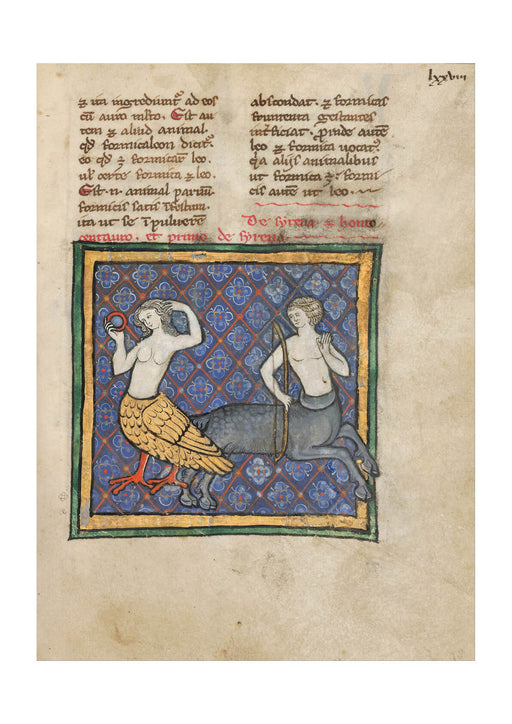 lxxviii
⁊ ita ingrediunt᷑ ad eos
cū auro mīsto. Est au
tem ⁊ aliud animal.
qd̄ formicaleon dicit᷑.
eo qd̄ ⁊ formicaꝝ leo.
ul' certe formica ⁊ leo.
Est .n. animal paruū
formicis satis
ita ut se ī puluere
abscondat. ⁊ formicas
frumenta gestantes
int̄ficiat. Proinde autē
leo ⁊ formica uocat᷑.
qa alijs animalibus
ut formica ⁊. formi
cis autē ut leo.
De syrena ⁊ homo
centauro. et primo de syrena